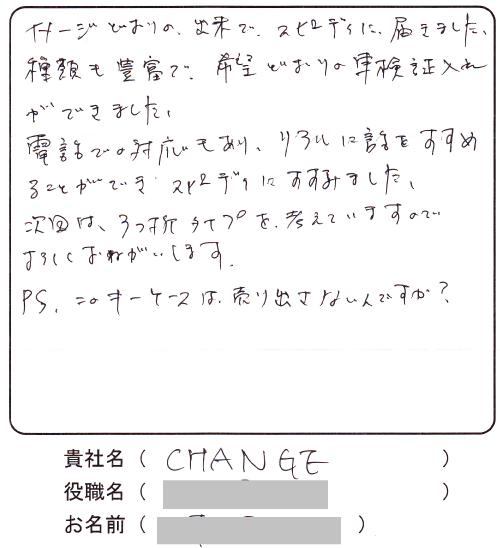 イメージどおりの、出来で、スピーディに、届きました、
種類も豊富で、希望どおりの車検証入れ
ができました、
電話での対応もあり、リアルに話をすすめ
ることができ スピーディにすすみました、
次回は、3つ折タイプを、考えていますので
よろしくおねがいします.
PS, このキーケースは、売り出さないんですか?
貴社名 ( CHANGE )
役職名 ( )
お名前 ( )